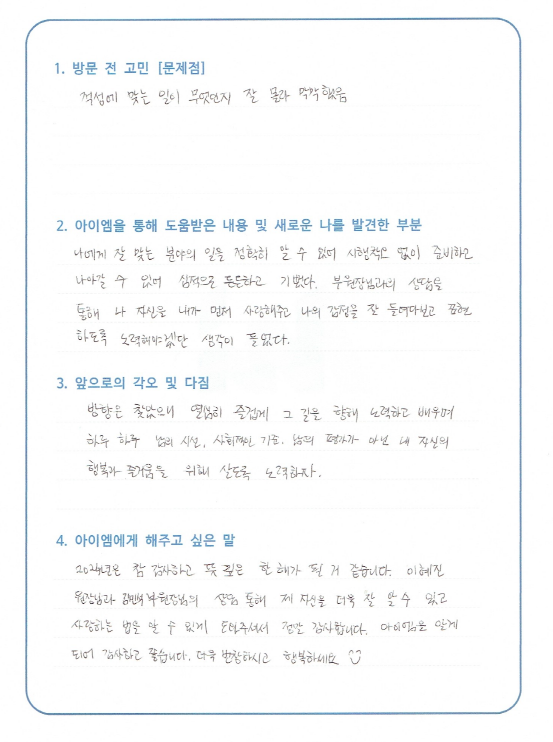 1. 방문 전 고민 [문제점]
적성에 맞는 일이 무엇인지 잘 몰라 막막했음
2. 아이엠을 통해 도움받은 내용 및 새로운 나를 발견한 부분
나에게 잘 맞는 분야의 일을 정확히 알 수 있어 시행착오 없이 준비하고
나아갈 수 있어 심적으로 든든하고 기뻤다. 부원장님과의 상담을
통해 나 자신을 내가 먼저 사랑해주고 나의 감정을 잘 들여다보고 표현
하도록 노력해야겠단 생각이 들었다.
3. 앞으로의 각오 및 다짐
방향은 찾았으니 열심히 즐겁게 그 길을 향해 노력하고 배우며
하루 하루 남의 시선, 사회적인 기준, 남의 평가가 아닌 내 자신의
행복과 즐거움을 위해 살도록 노력하자.
4. 아이엠에게 해주고 싶은 말
2024년은 참 감사하고 뜻 깊은 한 해가 될 거 같습니다. 이혜진
원장님과 부원장님의 상담 통해 제 자신을 더욱 잘 알 수 있고
사랑하는 법을 알 수 있게 도와주셔서 정말 감사합니다. 아이엠을 알게
되어 감사하고 좋습니다. 더욱 번창하시고 행복하세요